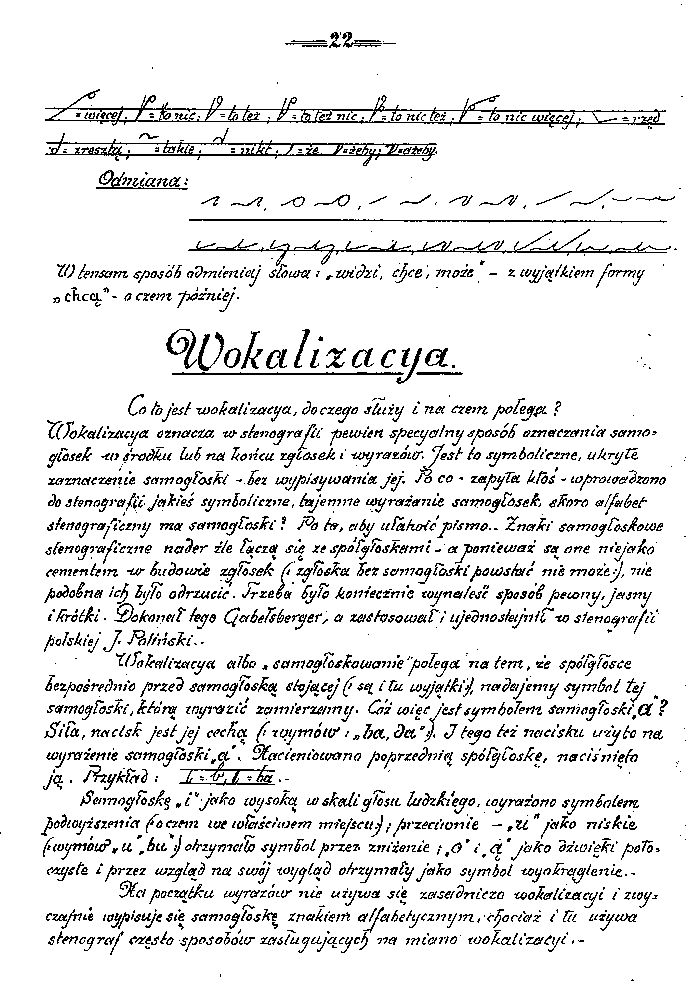 22
= więcej; = to nic; = to też; = to też nic; = to nic też; = to nic więcej; = rząd
= zresztą; = takie; = nikt; = że = żeby; = ażeby.
Odmiana:
W tensam sposób odmieniaj słowa: „widzi, chce, może" – z wyjątkiem formy
„chcą" - o czem później.
Wokalizacya.
Co to jest wokalizacya, do czego służy i na czem polega?
Wokalizacya oznacza w stenografii pewien specyalny sposób oznaczania samo-
głosek w środku lub na końcu zgłosek i wyrazów. Jest to symboliczne, ukryte
zaznaczenie samogłoski - bez wypisywania jej. Po co - zapyta ktoś - wprowadzono
do stenografii jakieś symboliczne, tajemne wyrażanie samogłosek, skoro alfabet
stenograficzny ma samogłoski? Po to, aby ułatwić pismo.. Znaki samogłoskowe
stenograficzne nader źle łączą się ze spółgłoskami - a ponieważ są one niejako
cementem w budowie zgłosek (: zgłoska bez samogłoski powstać nie może:), nie
podobna ich było odrzucić. Trzeba było koniecznie wynaleść sposób pewny, jasny
i krótki. Dokonał tego Gabelsberger, a zastosował i ujednostajnił w stenografii
polskiej J. Poliński..
Wokalizacya albo „samogłoskowanie" polega na tem, że spółgłosce
bezpośrednio przed samogłoską stojącej (: są i tu wyjątki:), nadajemy symbol tej
samogłoski, którą wyrazić zamierzamy. Cóż więc jest symbolem samogłoski „a"?
Siła, nacisk jest jej cechą (: wymów: „ba, da":). I tego też nacisku użyto na
wyrażenie samogłoski „a". Nacieniowano poprzednią spółgłoskę, naciśnięto
ją. Przykład: = b, = ba.-
Samogłoskę „i" jako wysoką w skali głosu ludzkiego, wyrażono symbolem
podwyższenia (: o czem we właściwem miejscu:); przeciwnie - „u" jako niskie
(: wymów „u", „bu":) otrzymało symbol przez zniżenie; „o" i „ą" jako dźwięki poto-
czyste i przez wzgląd na swój wygląd otrzymały jako symbol wyokrąglenie.-
Na początku wyrazów nie używa się zasadniczo wokalizacyi i zwy-
czajnie wypisuje się samogłoskę znakiem alfabetycznym, chociaż i tu używa
stenograf często sposobów zasługujących na miano wokalizacyi.-